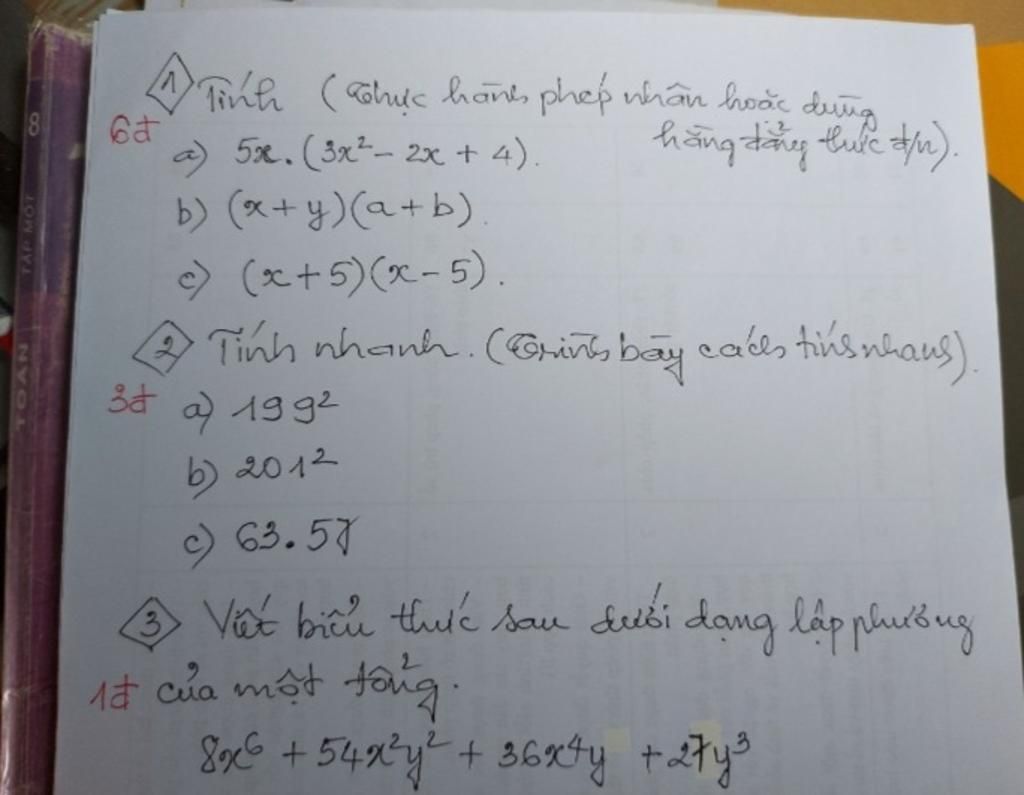 8
TẬP MỘT
TOÁN
1 Tính (Thực hành phép nhân hoặc dùng
hằng đẳng thức đ/n).
6đ
a) 5x.(3x² - 2x + 4).
b) (x+y)(a+b).
c) (x+5)(x-5).
2 Tính nhanh. (Trình bày cách tính nhanh).
3đ
a) 199²
b) 201²
c) 63.57
3 Viết biểu thức sau dưới dạng lập phương
1đ của một tổng.
8x⁶ + 54x²y² + 36x⁴y + 27y³